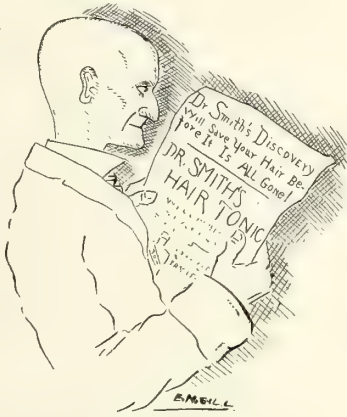 Dr Smith's Discovery
Will Save Your Hair Be-
fore It Is All Gone!
DR. SMITH'S
HAIR TONIC